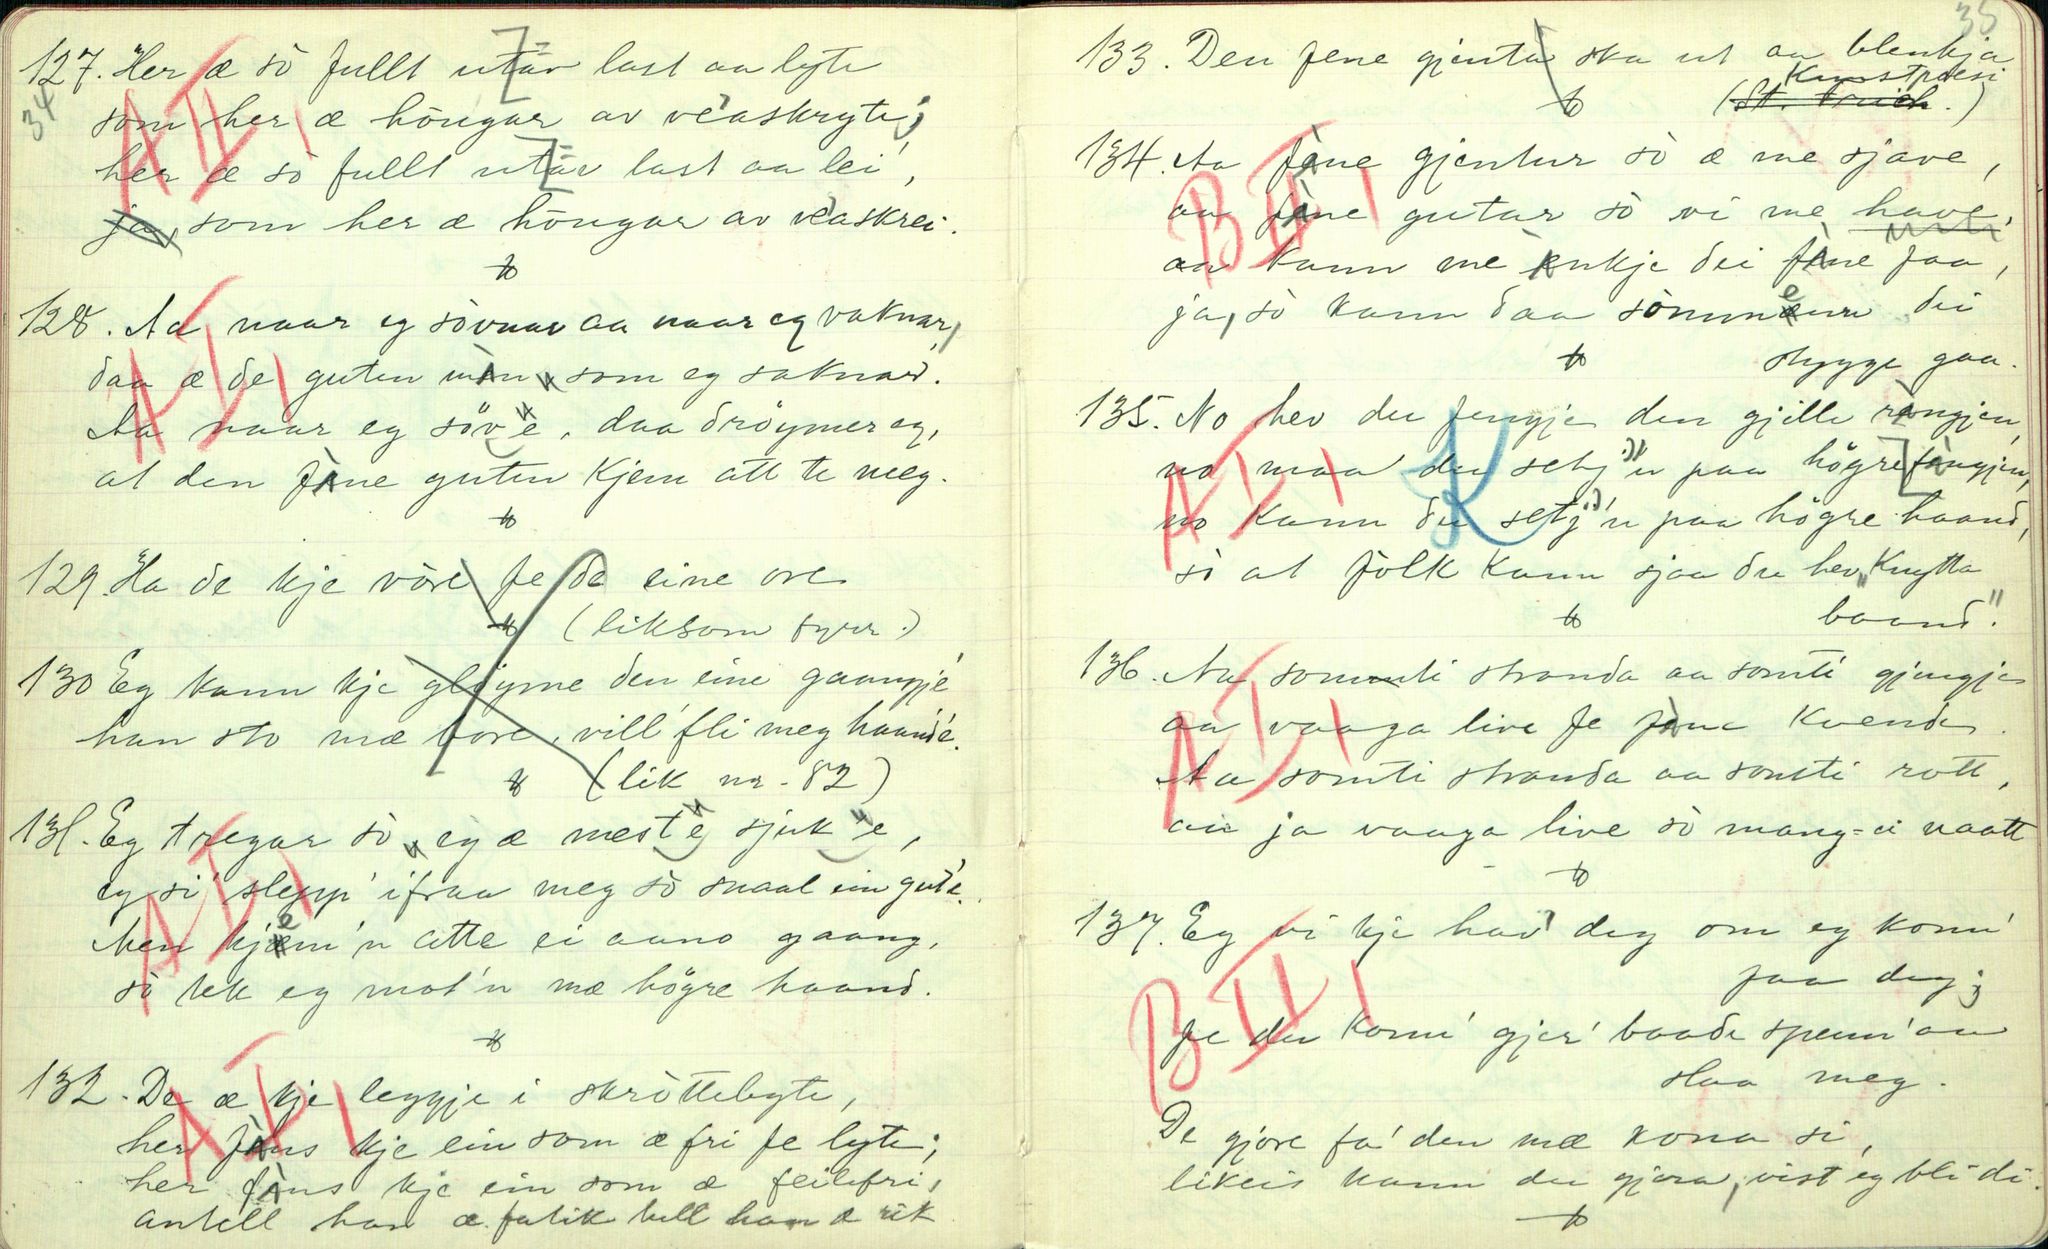 34
127. Her æ so fullt utav last aa lyte
som her æ höngar av veaskryte;
her æ so fullt utav last aa lei,
ja, som her æ höngar av veaskrei.
128. Aa naar eg sòvnar aa naar eg vaknar,
daa æ de guten min, som eg saknar.
Aa naar eg söve, daa dröymer eg,
at den fine guten kjem att te meg.
129. Ha de kje vòre fe de eine ore
(liksom fyrr.)
130 Eg kann kje gløyme den eine gaangje
han sto mæ bore, vill' fli meg haande.
(lik nr. 82)
131. Eg tregar so, eg æ meste sjuke,
eg si' slepp' ifraa meg so snaal ein gute.
Men kjem'n atte ei aano gaang,
so tek eg mot'n mæ högre haand.
132. De æ kje leggje i skròttebyte,
her fins kje ein som æ fri fe lyte;
her fins kje ein som æ feilefri,
antell han æ fatik hell han æ rik
35
133. Den fene gjenta ska ut aa blenkja
Kunstpoesi
(St. Friich.)
134. Aa fine gjentur so æ me sjave,
aa fine gutar so vi me have,
aa kann me inkje dei fine faa,
ja, so kann daa sommem dei
stygge gaa.
135. No hev du fengje den gjille ringjen,
no maa du setj'n paa högre fingjen,
no kann du setj'n paa högre haand,
so at folk kann sjaa du hev "knytta
baand".
136. Aa somti stranda aa somti gjengje
aa vaaga live fe fine kvende.
Aa somti stranda aa somti rott,
aa ja vaaga live so mang-ei naatt
137. Eg vi kje hav' deg om eg kom'
paa deg;
fe du kom' gjer' baade spenn' aa
slaa meg.
De gjore fa' den mæ kona si,
likeis kann du gjera, vist eg bli di.